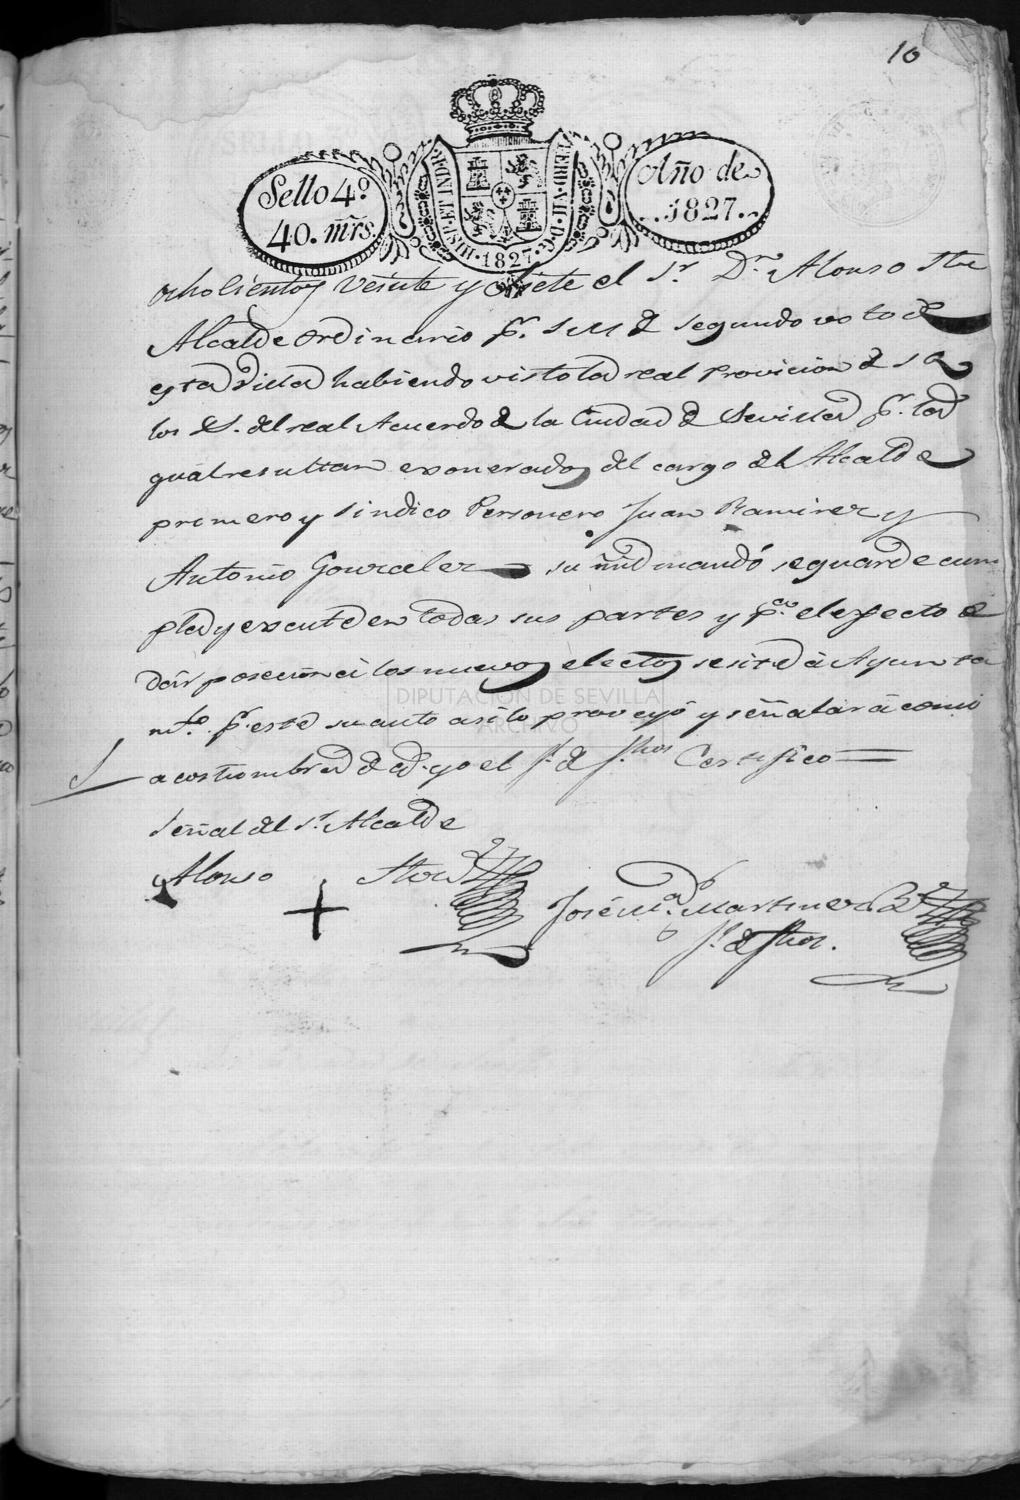 10
Sello 4º
40. mrs.
HISP. ET IND. R.
FERD. VII. D. G.
1827
Año de
1827
ocholsientos Veinte y Siete el Sr. Dn. Alonso
Alcalde ordinario pr. S. M. de segundo voto de
esta Villa habiendo visto la real Provicion de S A
los SS. del real Acuerdo de la Ciudad de Sevilla pr. la
qual resultan exonerados del cargo del Alcalde
primero y Sindico Personero Juan Ramirez y
Antonio Gonzalez su md mandó se guarde cum
pla y execute en todas sus partes y pa. el efecto de
dar poseción á los nuevos electos se site á Ayunta
mto. pr. este su auto asi lo proveyó y señalará como
acostumbra de q. yo el Sr. de fhos Certifico
Señal del Sr. Alcalde
Alonso
José Ma. Martinez
Sr. de fhos.
DIPUTACIÓN DE SEVILLA
ARCHIVO